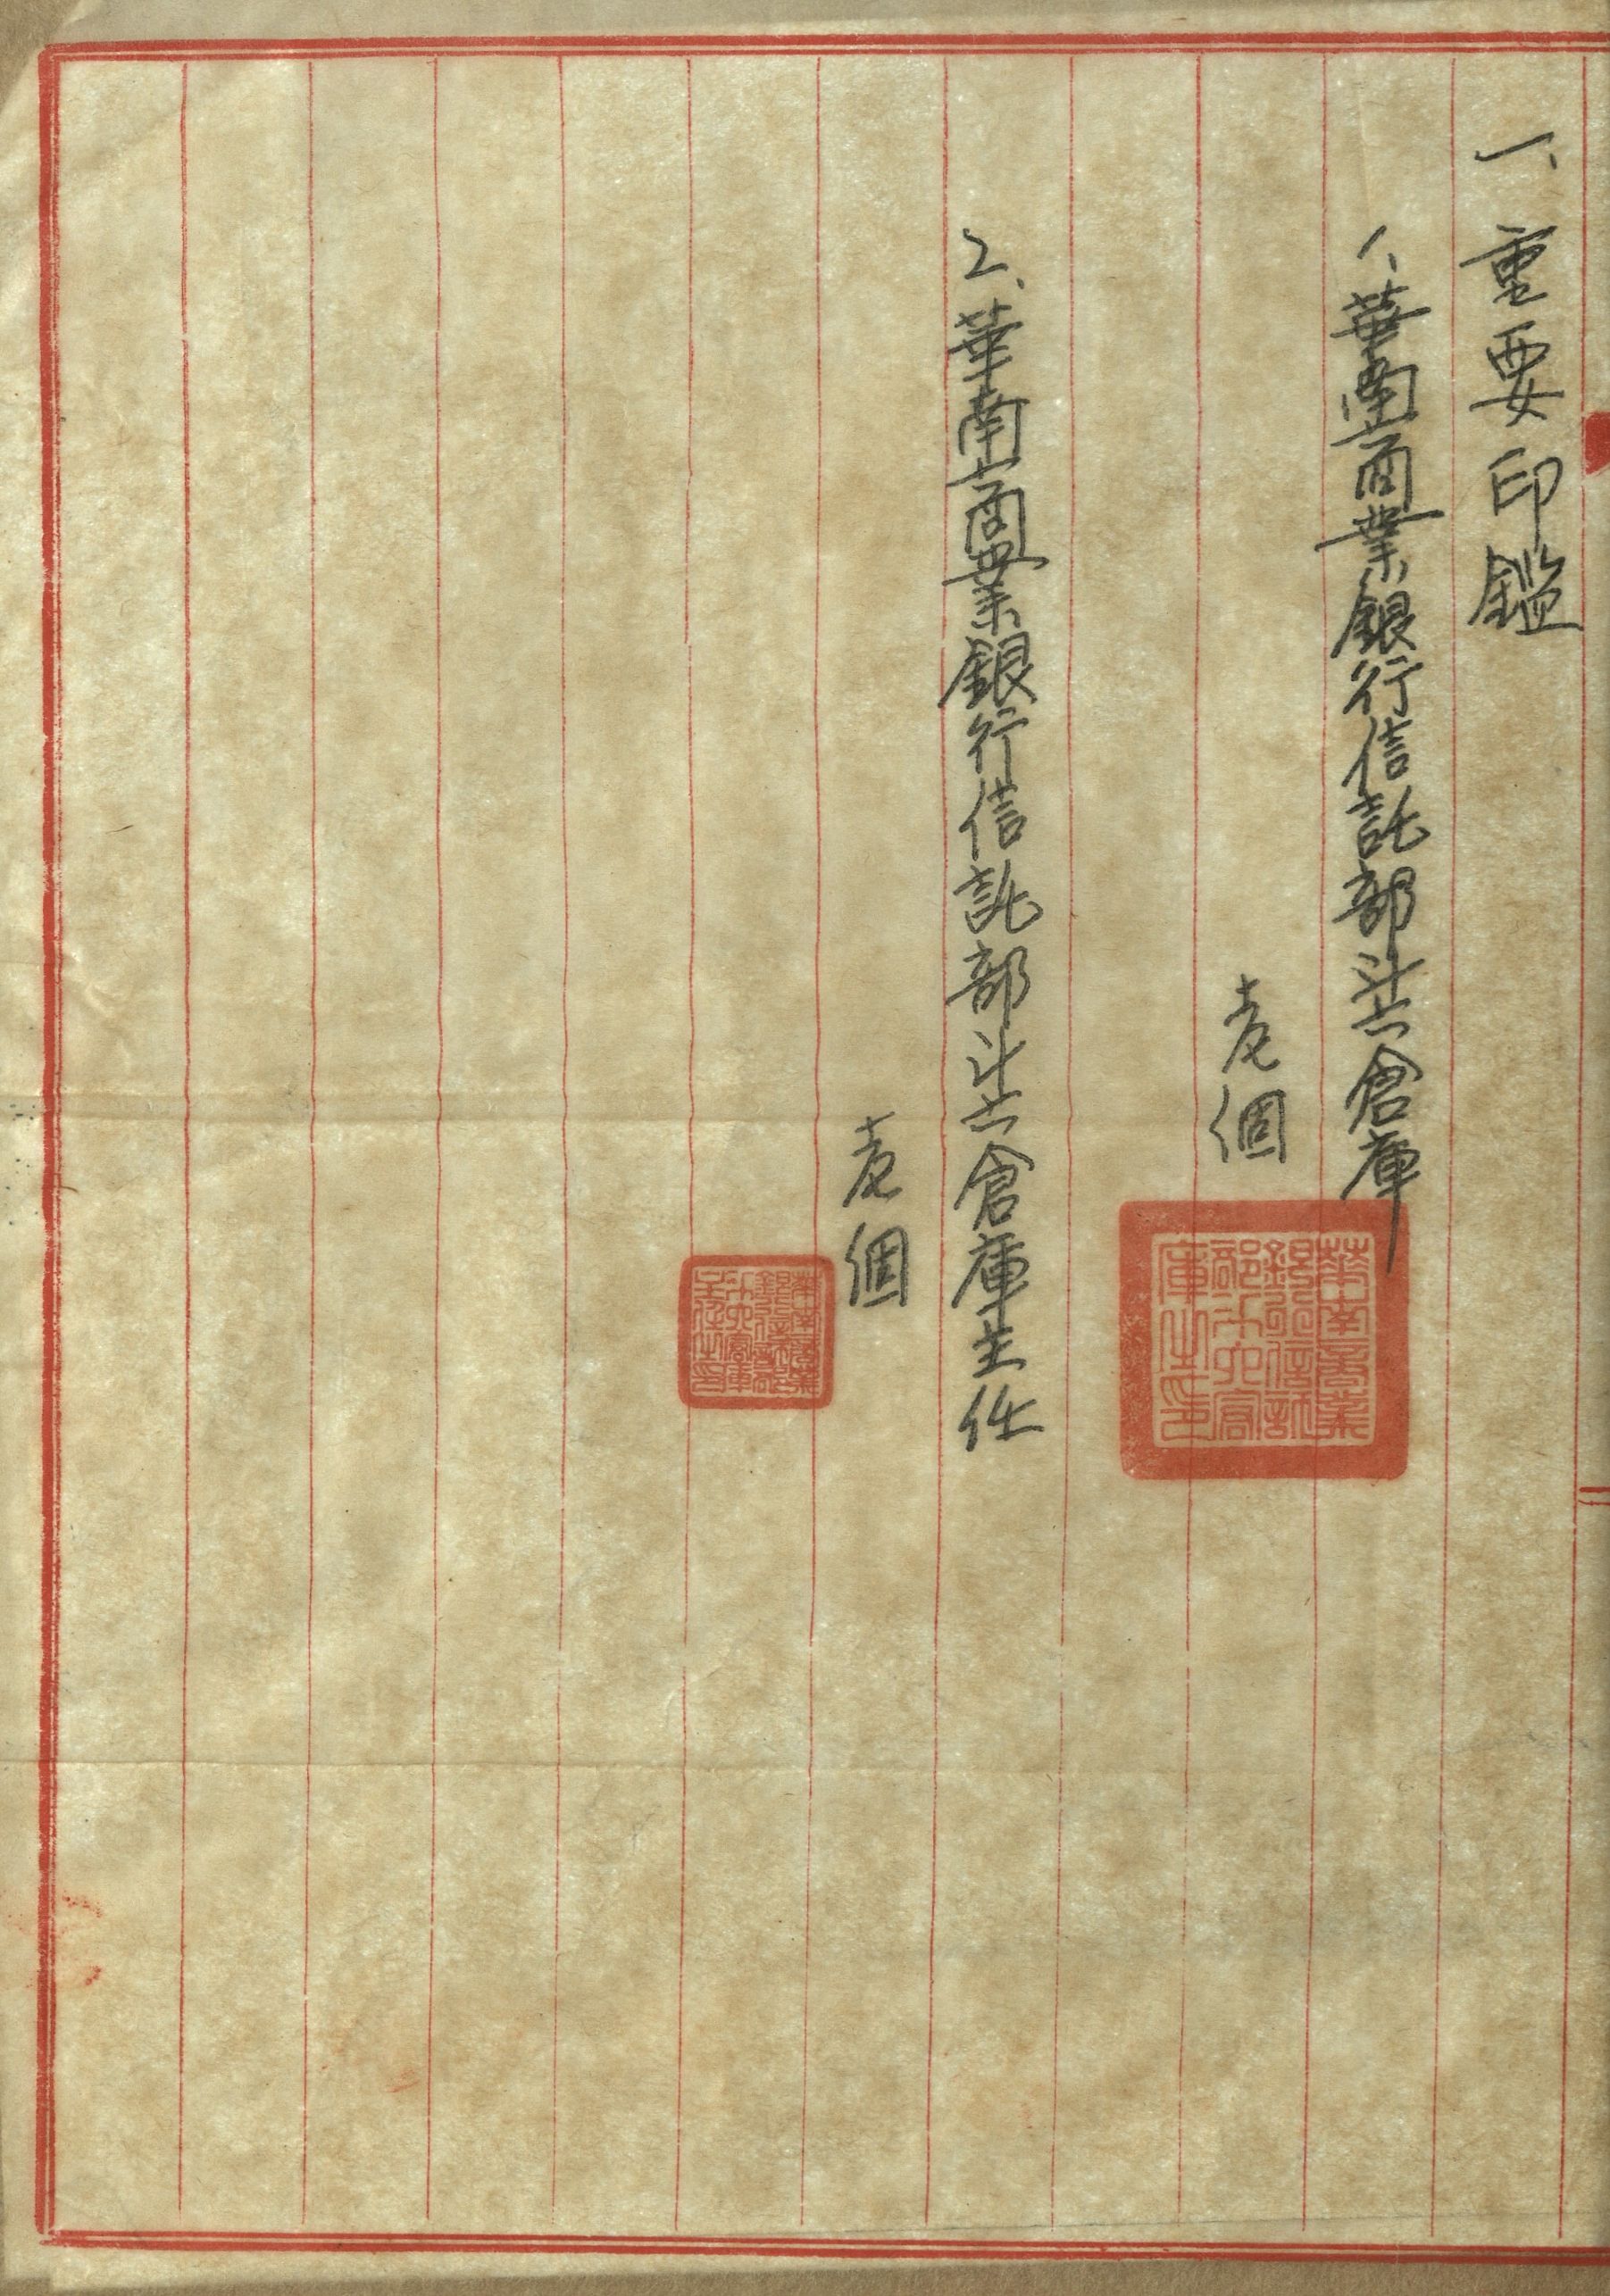 一、重要印鑑
1、華南商業銀行信託部斗六倉庫
壱個
華南商業
銀行信託
部斗六倉
庫之印
2、華南商業銀行信託部斗六倉庫主任
壱個
華南商業
銀行信託部
斗六倉庫
主任之印